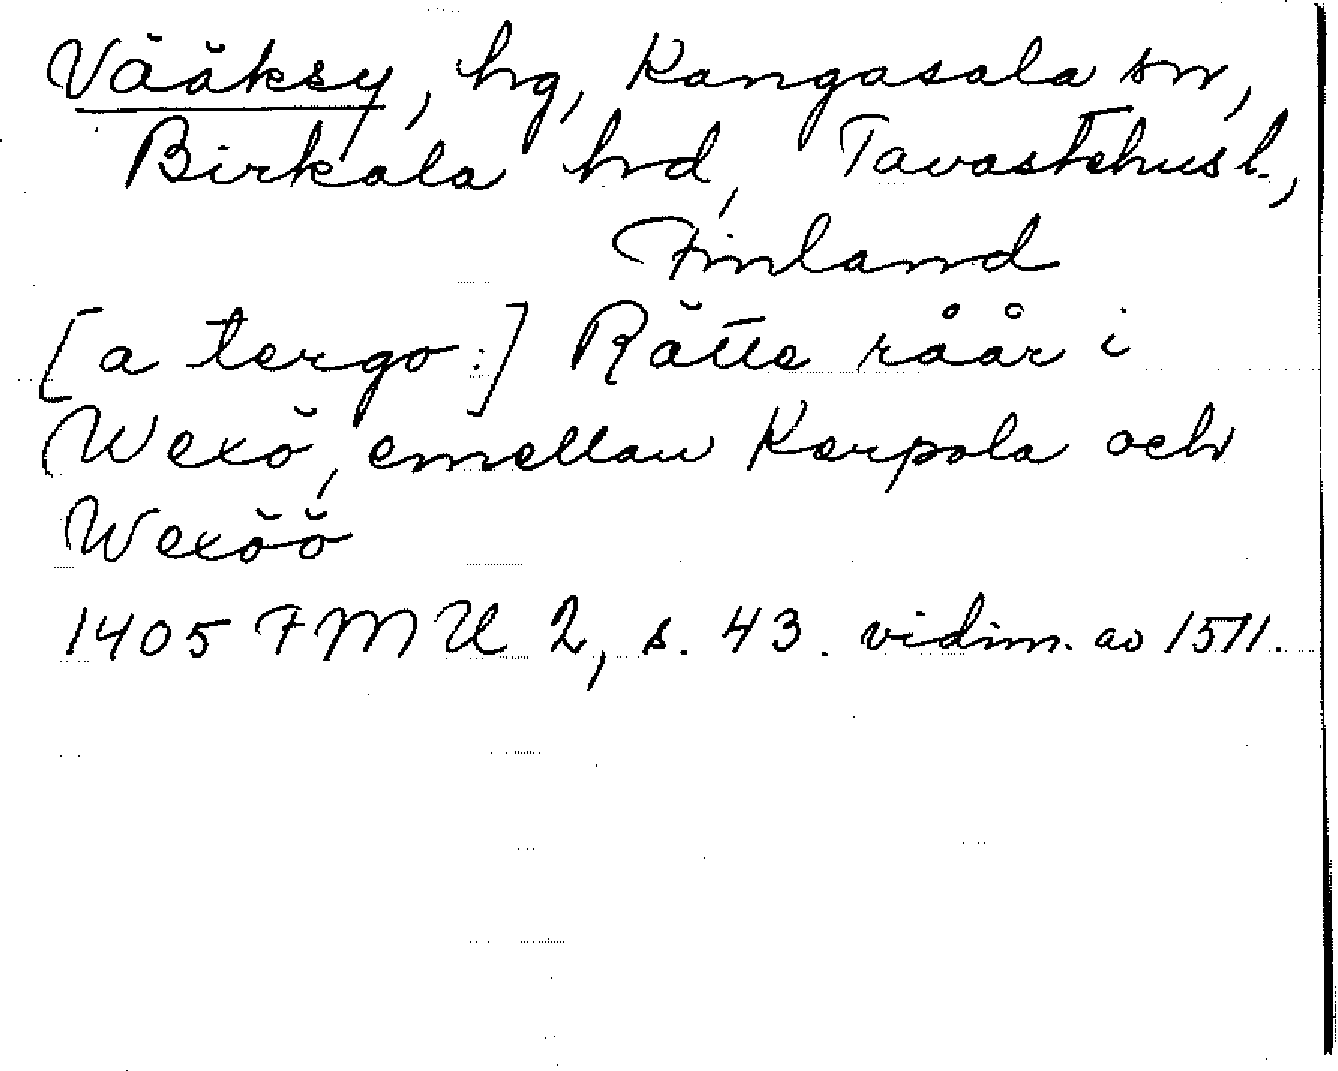 Vääksy, hg, Kangasala sn,
Birkala hd, Tavastehus l.,
Finland
[a tergo:] Rätte råår i
Wexö, emellan Kerpola och
Wexöö
1405 FMU 2, s. 43. vidim. av 1571.